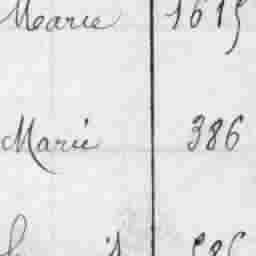 Marie 1615
Marie 386